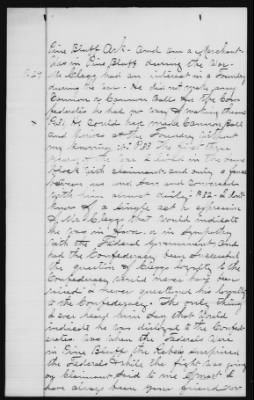 Pine Bluff Ark - and am a Merchant
Was in Pine Bluff during the War.
P. 29 McClegg had an interest in a Foundry
during the War - He did not make any
Cannon or Cannon Balls for the Con
federates he had no way of making them
Q31. He could have made Cannon Balls
and Knives at the Foundry without
my knowing it. P.33 The first three
years of the War I lived in the same
Block with claimant and only a fence
between us and saw and conversed
with him almost daily: P32. I dont
know of a single act or expression
of McClegg that would indicate
he was in favor or in sympathy
with the Federal Government. And
had the Confederacy been successful
the question of Cleggs loyalty to the
Confederacy would never have been
raised. I never questioned his loyalty
to the Confederacy. The only thing
I ever heard him say that would
indicate he was disloyal to the Confed-
erates was when the Federals were
in Pine Bluff the Rebels surprised
the Federals & while the fight was going
on Claimant said to me
have always been your friend